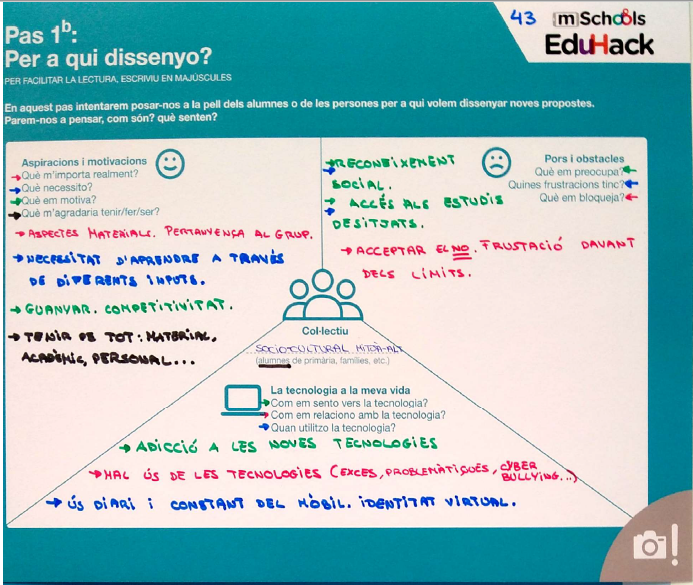 43
mSchools
EduHack
Pas 1b:
Per a qui dissenyo?
PER FACILITAR LA LECTURA, ESCRIVIU EN MAJÚSCULES
En aquest pas intentarem posar-nos a la pell dels alumnes o de les persones per a qui volem dissenyar noves propostes.
Parem-nos a pensar, com són? què senten?
Aspiracions i motivacions
Què m'importa realment?
Què necessito?
Què em motiva?
Què m'agradaria tenir/fer/ser?
→ ASPECTES MATERIALS. PERTANYENÇA AL GRUP.
→ NECESSITAT D'APRENDRE A TRAVÉS
DE DIFERENTS INPUTS.
→ GUANYAR. COMPETITIVITAT.
→ TENIR DE TOT: MATERIAL,
ACADÈMIC, PERSONAL...
Pors i obstacles
Què em preocupa?
Quines frustracions tinc?
Què em bloqueja?
→ RECONEIXEMENT
SOCIAL.
→ ACCÉS ALS ESTUDIS
DESITJATS.
→ ACCEPTAR EL NO. FRUSTACIÓ DAVANT
DELS LÍMITS.
Col·lectiu
SOCIOCULTURAL MITJÀ-ALT
(alumnes de primària, famílies, etc.)
La tecnologia a la meva vida
Com em sento vers la tecnologia?
Com em relaciono amb la tecnologia?
Quan utilitzo la tecnologia?
→ ADICCIÓ A LES NOVES TECNOLOGIES
→ MAL ÚS DE LES TECNOLOGIES (EXCES, PROBLEMÀTIQUES, CYBER
BULLYING...)
→ ÚS DIARI I CONSTANT DEL MÒBIL. IDENTITAT VIRTUAL.